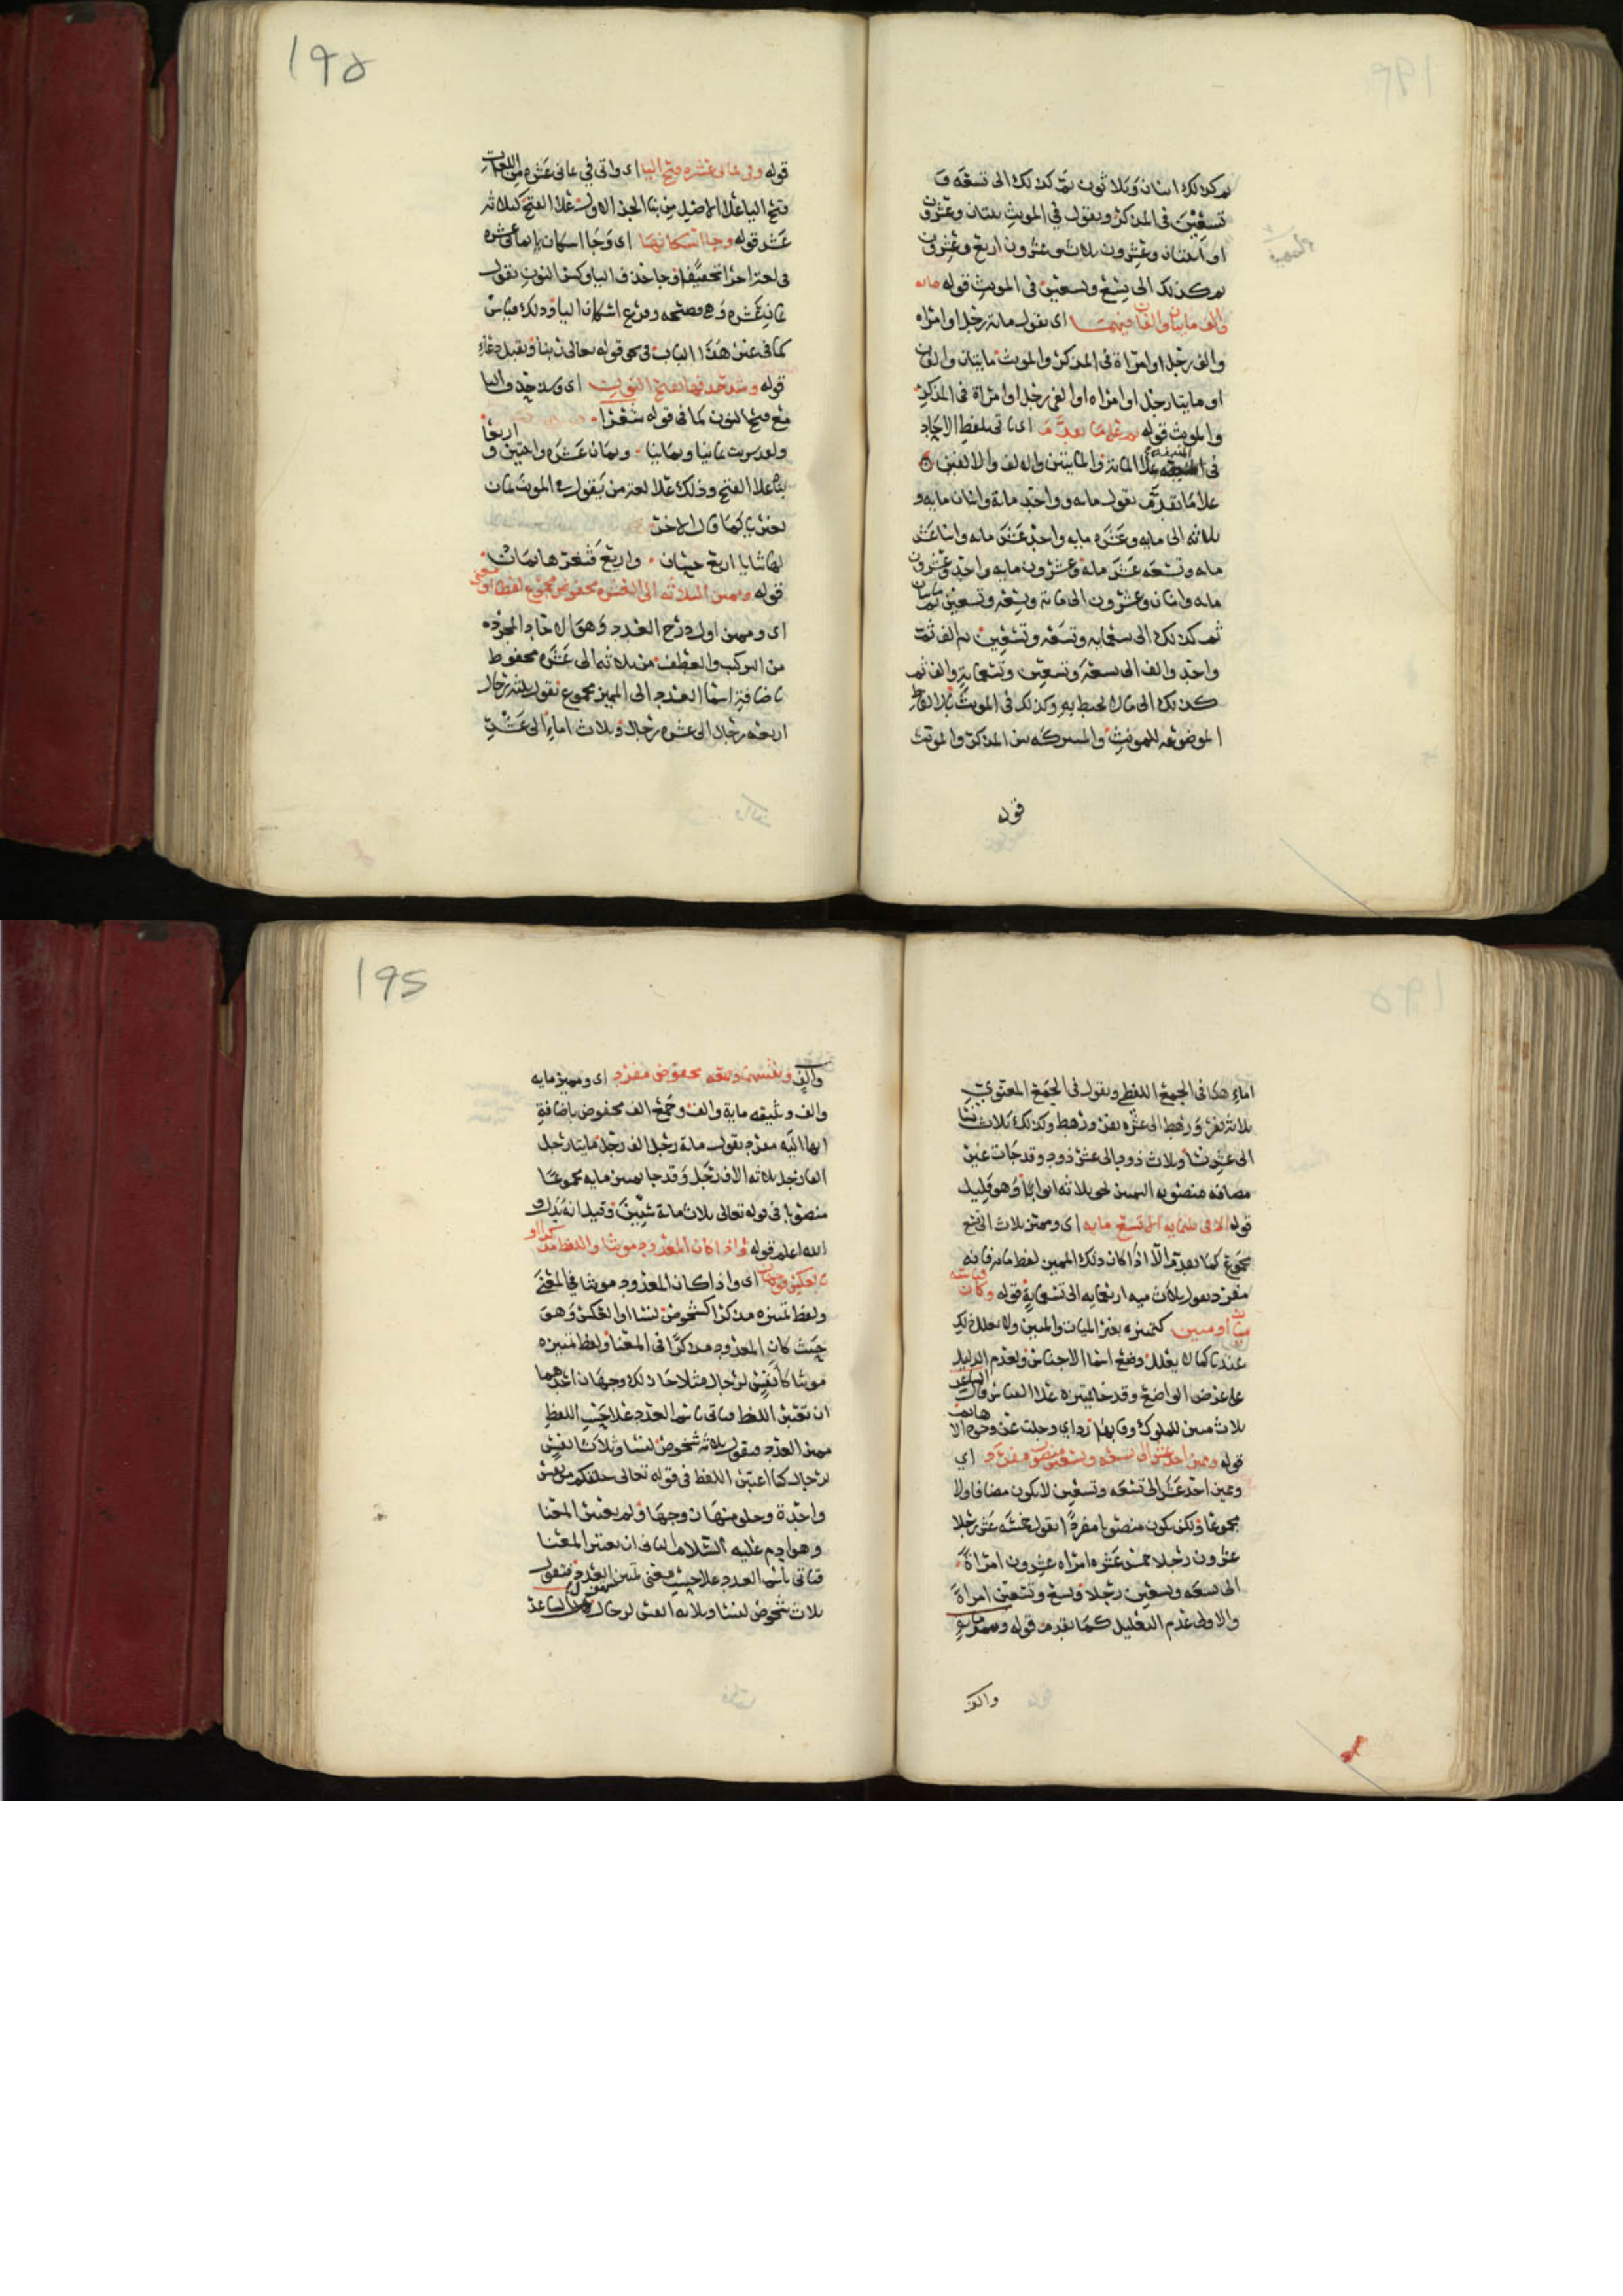 ثم كذلك اثنان وثلاثون ثم كذلك الى تسعة و
تسعين في المذكر وبقول في المونث ثنتان وعشرون
او اثنتان وعشرون ثلاث وعشرون اربع وعشرون
ثم كذلك الى تسع وتسعين في المونث قوله مائه
والف مايتان والفان فيهما اي تقول مائة رجل او امراه
والف رجل او امراة في المذكر والمونث مايتان والفان
او مايتا رجل او امراه او الفي رجل او امراة في المذكر
والمونث قوله ثم على ما تقدم اي تاتي بلفظ الاحاد
في علا المائة والمايتين والالف والالفين
علا ما تقدم تقول مايه وواحد مائة واثنان مايه و
ثلاثه الى مايه وعشره مايه واحد عشر مايه واثنا عشر
مايه وتسعه عشر مايه وعشرون مايه واحد وعشرون
مايه واثنان وعشرون الى مائة وتسعة وتسعين ثم مايتان
ثم كذلك الى تسعمايه وتسعه وتسعين ثم الف ثمت
واحد والف الى تسعة وتسعين وتسعماية والف ثم
كذلك الى ما لا يحيط به وكذلك في المونث بالالفاظ
الموضوعه للمونث والمشتركه بين المذكر والمونث
قوله
١٩٥
قوله وفي ثماني عشره فتح اليا اي واتى في ثماني عشره من اللغات
فتح اليا علا الاصل من بنا الجزء الاول علا الفتح كثلاثه
عشر قوله وجا اسكانها اي وجا اسكان يا ثماني عشره
في لغة اخرا تخفيفا وجا حذف اليا وكسر النون تقول
ثمان عشره وهو فرع اسكان اليا وذلك قياس
كما في غير هذا الباب في نحو قوله تعالى ربنا وتقبل دعاء
قوله وشذ حذفها بفتح النون اي وشذ حذف اليا
مع فتح النون كما في قوله شعرا
ولقد شربت ثمانيا وثمانيا وثمان عشره واثنين واربعا
بناه علا الفتح وذلك علا لغة من يقول في المونث ثمان
بغير يا كما قال الاخر
لها ثنايا اربع حسان واربع فثغرها ثمان
قوله ومميز الثلاثه الى العشره مخفوض مجموع لفظا او معنى
اي ومميز اول درج العدد وهو الاحاد المجرده
من التركيب والعطف من ثلاثه الى عشره مخفوط
باضافة اسما العدد الى المميز مجموع تقول ثلثه رجال
اربعه رجال الى عشره رجال وثلاث اماء الى عشر
١٩٥
اماء هذا في الجمع اللفظي وتقول في الجمع المعنوي
ثلاثة نفر ورهط الى عشره نفر ورهط وكذلك ثلاث نسا
الى عشر نسا وثلاث ذود الى عشر ذود وقد جات غير
مضافه منصوبه المميز نحو ثلاثه اثوابا وهو قليل
قوله الا في ثلثمايه الى تسع مايه اي ومميز ثلاث الى تسع
مجموع كما تقدم الا اذا كان ذلك المميز لفظ مايه فانه
مفرد تقول ثلاث ميه اربعمايه الى تسعماية قوله وكان قياسه
ميات او ميين كتمييزه بغير الميات والميين ولا تعلل ذلك
عندنا كما لا يعلل وضع اسما الاجناس ولعدم الدليل
على غرض الواضع وقد جا تمييزه علا القياس قال الشاعر
ثلاث ميين للملوك وفا بها ردائي وجلت عن وجوه الاهاتم
قوله ومميز احد عشر الى تسعه وتسعين منصوب مفرد اي
ومميز احد عشر الى تسعه وتسعين لا يكون مضافا ولا
مجموعا ولكن يكون منصوبا مفردا تقول خمسه عشر رجلا
عشرون رجلا خمس عشره امراه عشرون امراة
الى تسعه وتسعين رجلا وتسع وتسعين امراة
والاولى عدم التعليل كما تقدم قوله ومميز ماية
والف
195
والف وتثنيتهما وجمعه مخفوض مفرد اي ومميز مايه
والف وتثنيه ماية والف وجمع الف مخفوض باضافة
ايها اليه مفرد تقول مائة رجل الف رجل مايتا رجل
الفا رجل ثلاثه الاف رجل وقد جا تمييز مايه مجموعا
منصوبا في قوله تعالى ثلاث مائة سنين وقيل انه بدل و
الله اعلم قوله واذا كان المعدود مونثا واللفظ مذكرا او
بالعكس فوجهان اي واذا كان المعدود مونثا في المعنى
ولفظ تمييزه مذكرا كشخوص لنسا او العكس وهو
حيث كان المعدود مذكرا في المعنا ولفظ تمييزه
مونثا كأنفس لرجال مثلا جا ذلك وجهان احدهما
ان تعتبر اللفظ فتاتي باسم العدد علا حسب اللفظ
مميز العدد فتقول ثلاثه شخوص لنسا وثلاث انفس
لرجال كما اعتبر اللفظ في قوله تعالى خلقكم من نفس
واحدة وخلق منها زوجها ولم يعتبر المعنا
وهو ادم عليه السلام الثاني ان تعتبر المعنا
فتاتي باسم العدد علا حسب معنى تمييز العدد فتقول
ثلاث شخوص لنسا وثلاثه انفس لرجال الشاعر